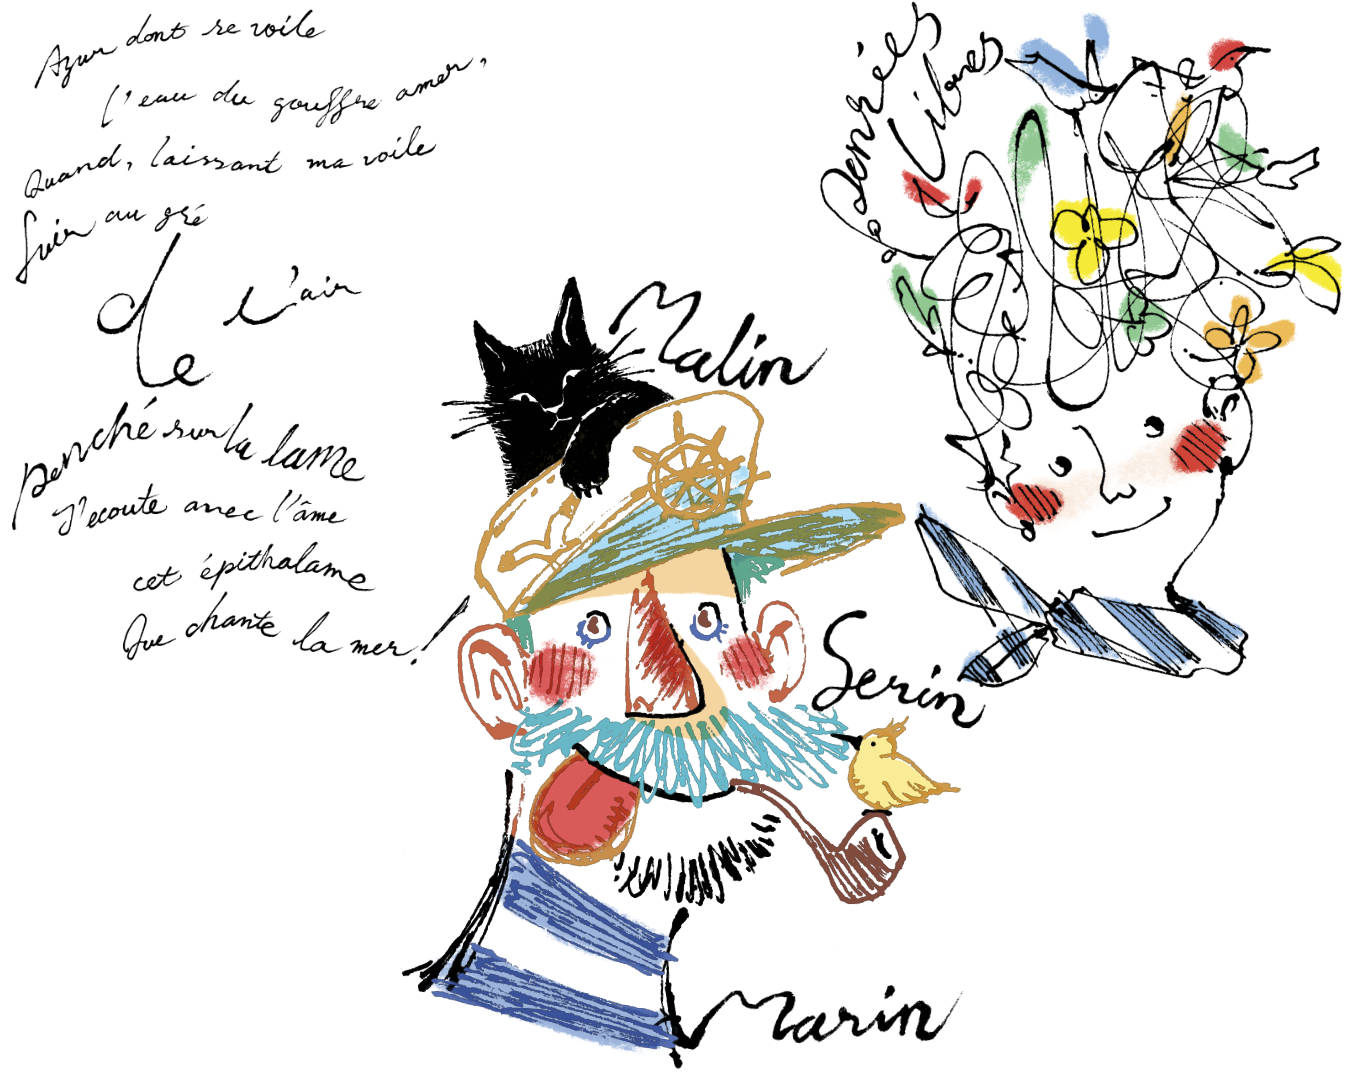 Azur dont se voile
l'eau du gouffre amer,
Quand, laissant ma voile
fuir au gré
de l'air
penché sur la lame
J'ecoute avec l'âme
cet épithalame
Que chante la mer!
Malin
Serin
Marin
Libres